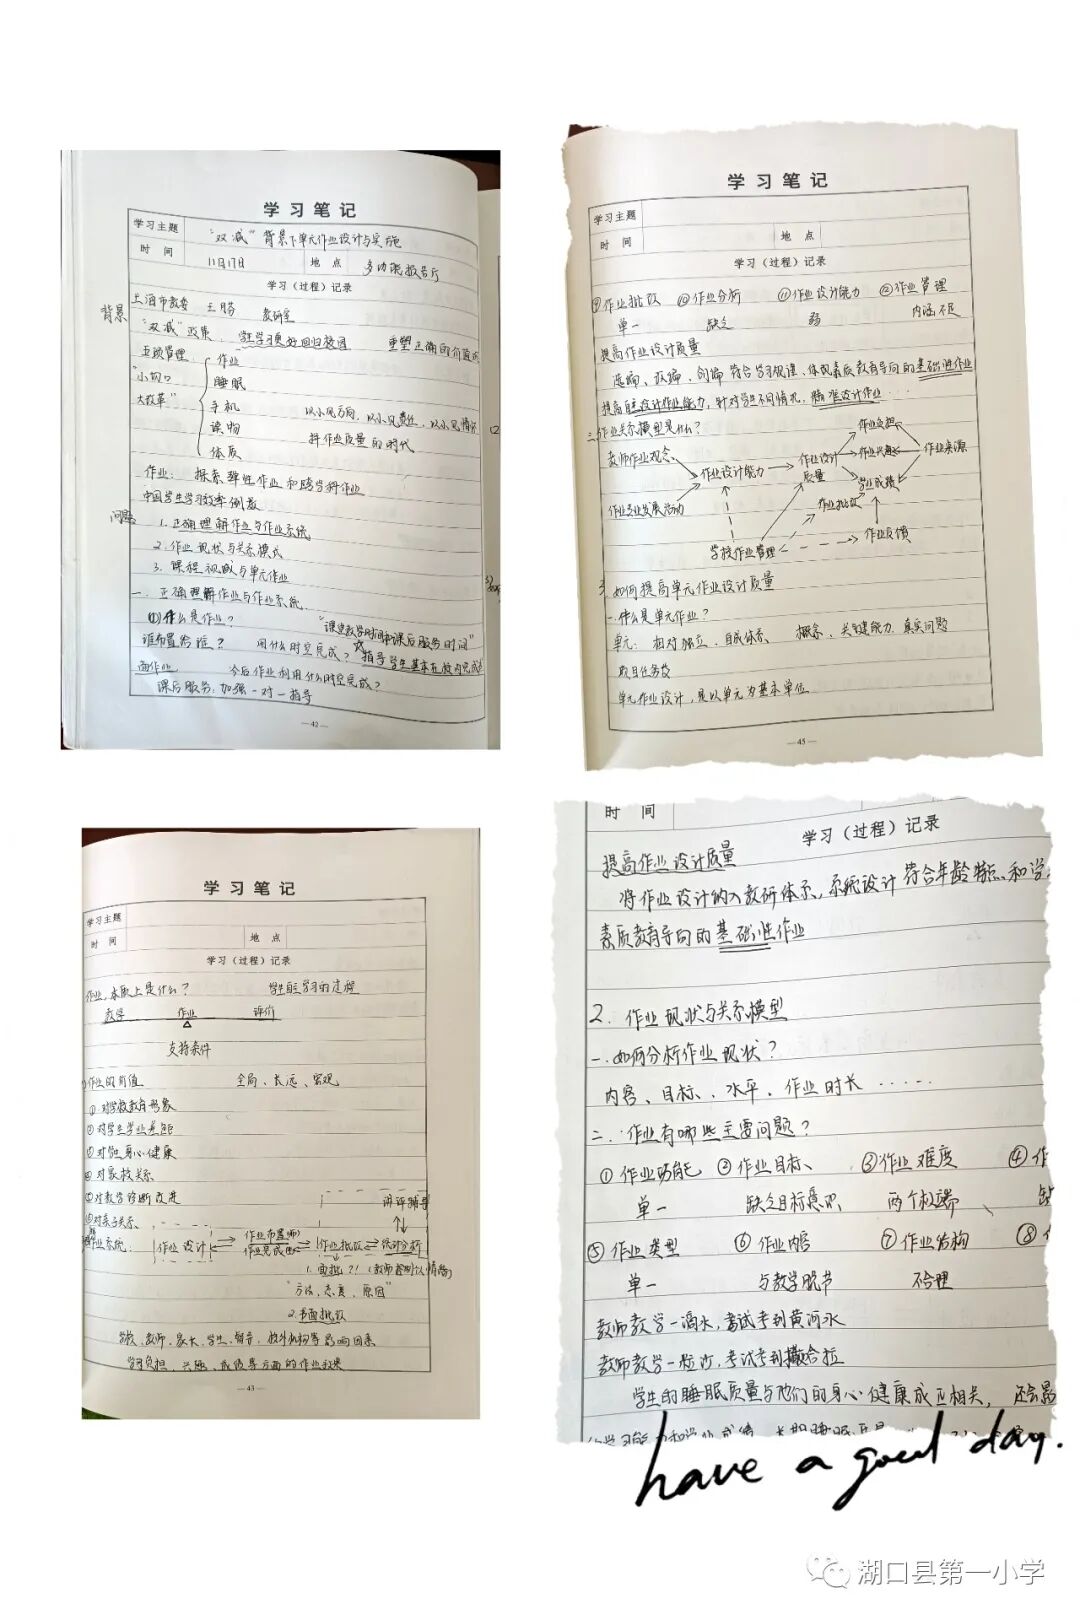 学习笔记
学习主题 "双减"背景下单元作业设计与实施
时间 11月17日 地点 多功能报告厅
学习（过程）记录
背景 上海市教委 王月芬 教研室
"双减"政策 学生学习更好回归校园 重塑正确的价值观
五项管理 作业
"小切口 睡眠
大改革" 手机 以小见方向，以小见责任，以小见情怀
读物 拼作业质量的时代
体质
作业：探索弹性作业和跨学科作业
中国学生学习效率倒数
问题 1.正确理解作业与作业系统
2.作业现状与关系模式
3.课程视域与单元作业
一、正确理解作业与作业系统
(1)什么是作业？ "课堂教学时间和课后服务时间"
谁布置给谁？ 用什么时空完成？ 指导学生基本在校内完成书
面作业 今后作业利用什么时空完成？
课后服务：加强一对一指导
—42—
学习笔记
学习主题
时间 地点
学习（过程）记录
⑨作业批改 ⑩作业分析 ⑪作业设计能力 ⑫作业管理
单一 缺乏 弱 内涵不足
提高作业设计质量
选编、改编、创编 符合学习规律、体现素质教育导向的基础性作业
提高自主设计作业能力，针对学生不同情况，精准设计作业...
三、作业关系模型是什么？
教师作业观念 作业设计能力 作业设计质量 作业负担 作业兴趣 作业来源
作业专业发展活动 学业成绩
作业批改
学校作业管理 作业反馈
3.如何提高单元作业设计质量
一.什么是单元作业？
单元：相对独立、自成体系、 概念、关键能力、真实问题
单元作业设计，是以单元为基本单位
—45—
学习笔记
学习主题
时间 地点
学习（过程）记录
作业，本质上是什么？ 学生自主学习的过程
教学 作业 评价
支持条件
作业的价值 全局、长远、客观
①对学校教育形象
②对学生学业差距
③对师生身心健康
④对家校关系
⑤对教学诊断改进
⑥对亲子关系 讲评辅导
作业系统： 作业设计 作业布置(师) 作业完成(生) 作业批改 统计分析
1.面批？！（教师控制认情绪）
"方法，态度，原因"
2.书面批改
学校、教师、家长、学生、辅导、校外机构等影响因素
学习负担、兴趣、成绩等方面的作业效果
—43—
时间
学习（过程）记录
提高作业设计质量
将作业设计纳入教研体系，系统设计符合年龄特点和学
素质教育导向的基础性作业
2.作业现状与关系模型
一.如何分析作业现状？
内容、目标、水平、作业时长......
二.作业有哪些主要问题？
①作业功能 ②作业目标、 ③作业难度 ④作
单一 缺乏目标意识 两个极端 缺
⑤作业类型 ⑥作业内容 ⑦作业结构 ⑧
单一 与教学脱节 不合理
教师教学一滴水，考试考到黄河水
教师教学一粒沙，考试考到撒哈拉
学生的睡眠质量与他们的身心健康成正相关，还会影
have a good day.
湖口县第一小学